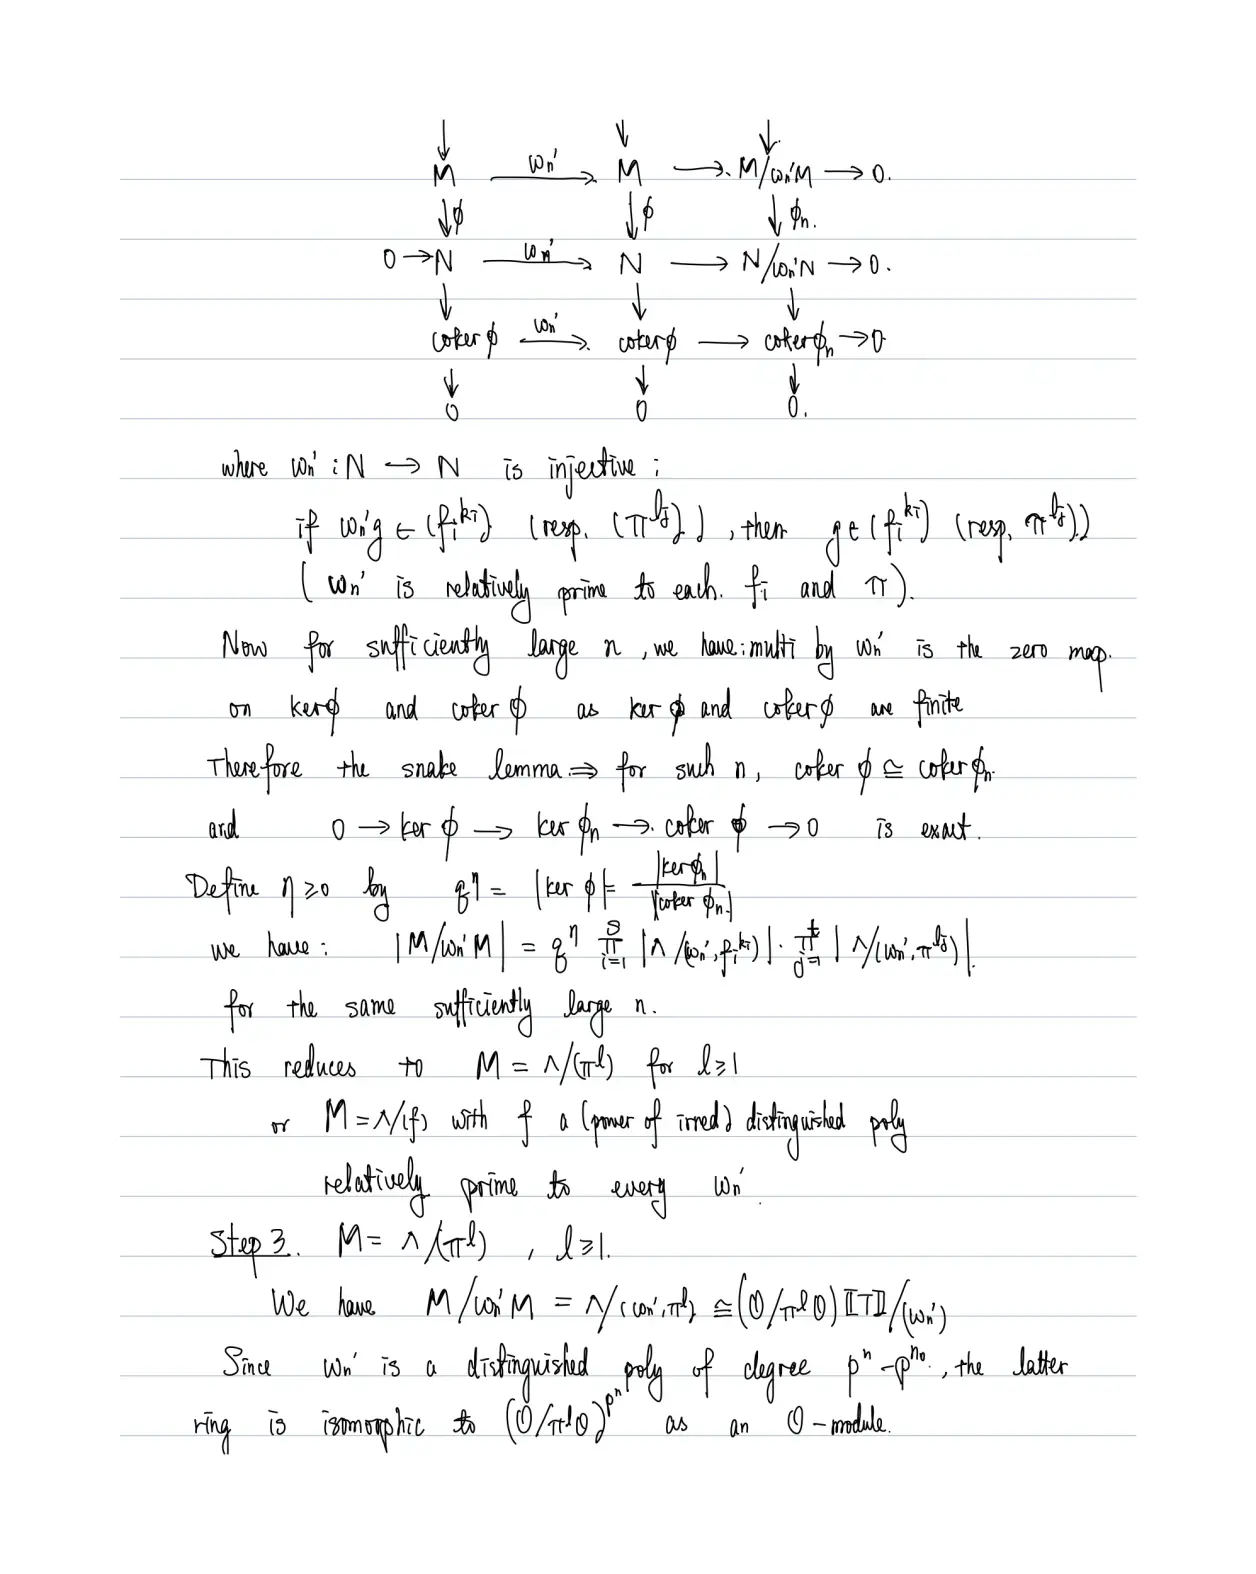 ↓ ↓ ↓
M —ωn'→ M → M/ωn'M → 0.
↓φ ↓φ ↓φn.
0 → N —ωn'→ N → N/ωn'N → 0.
↓ ↓ ↓
coker φ —ωn'→ coker φ → coker φn → 0
↓ ↓ ↓
0 0 0.
where ωn' : N → N is injective ;
if ωn'g ∈ (fi^ki) (resp. (π^lj)), then g ∈ (fi^ki) (resp. π^lj))
(ωn' is relatively prime to each. fi and π).
Now for sufficiently large n, we have: multi by ωn' is the zero map.
on ker φ and coker φ as ker φ and coker φ are finite
Therefore the snake lemma ⇒ for such n, coker φ ≅ coker φn.
and 0 → ker φ → ker φn → coker φ → 0 is exact.
Define η ≥ 0 by q^η = |ker φ| = |ker φn| / |coker φn.|
we have : |M/ωn'M| = q^η ∏_{i=1}^{s} |Λ/(ωn', fi^ki)| · ∏_{j=1}^{t} |Λ/(ωn', π^lj)|.
for the same sufficiently large n.
This reduces to M = Λ/(π^l) for l ≥ 1
or M = Λ/(f) with f a (power of irred) distinguished poly
relatively prime to every ωn'.
Step 3. M = Λ/(π^l) , l ≥ 1.
We have M/ωn'M = Λ/(ωn', π^l) ≅ (O/π^l O)⟦T⟧/(ωn')
Since ωn' is a distinguished poly of degree p^n - p^n0., the latter
ring is isomorphic to (O/π^l O)^p^n as an O-module.